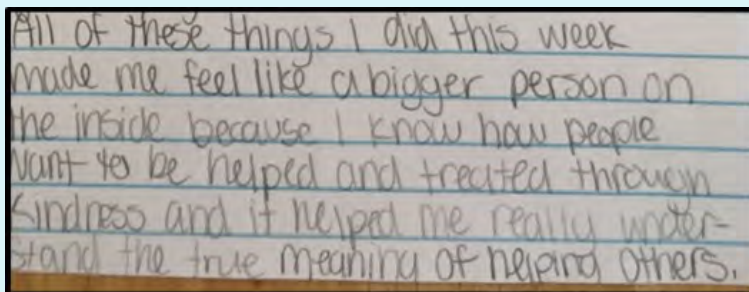 All of these things I did this week
made me feel like a bigger person on
the inside because I know how people
want to be helped and treated through
kindness and it helped me really under-
stand the true meaning of helping others.